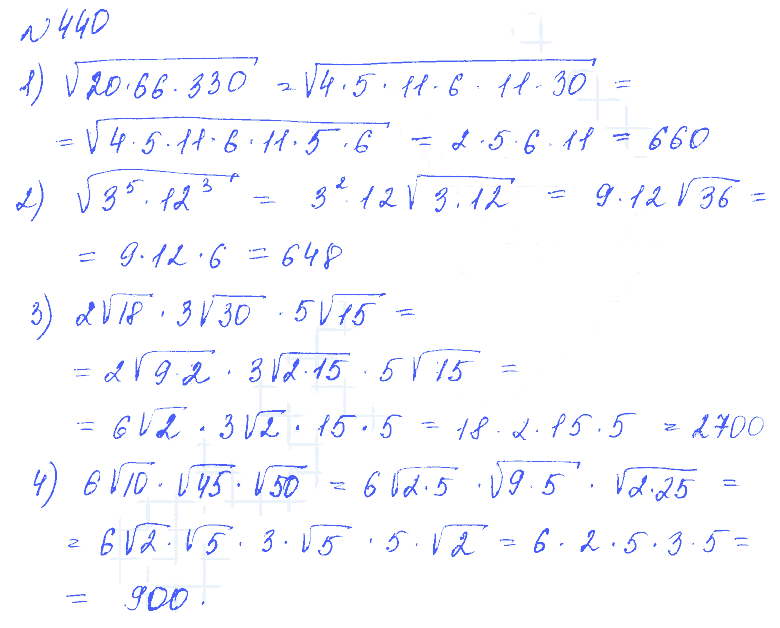 №440
1) √(20·66·330) = √(4·5·11·6·11·30) =
= √(4·5·11·6·11·5·6) = 2·5·6·11 = 660
2) √(3⁵·12³) = 3²·12√(3·12) = 9·12√36 =
= 9·12·6 = 648
3) 2√18 · 3√30 · 5√15 =
= 2√(9·2) · 3√(2·15) · 5√15 =
= 6√2 · 3√2 · 15 · 5 = 18·2·15·5 = 2700
4) 6√10 · √45 · √50 = 6√(2·5) · √(9·5) · √(2·25) =
= 6√2 · √5 · 3 · √5 · 5 · √2 = 6·2·5·3·5 =
= 900.